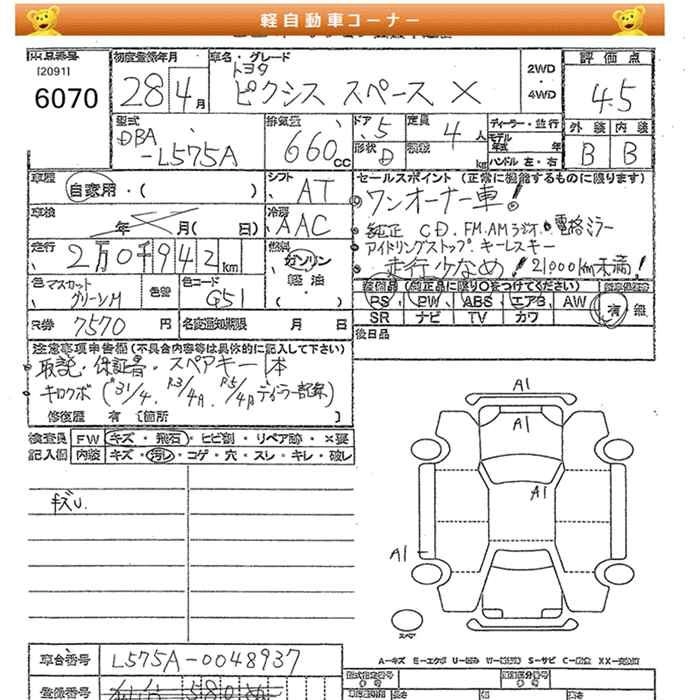 軽自動車コーナー
[2091]
6070
初度登録年月
28 4月
車名・グレード
トヨタ
ピクシス スペース X
2WD
・
4WD
評価点
4.5
外装 内装
B B
型式
DBA
-L575A
排気量
660cc
ドア 5
定員 4人
形状 D
ディーラー・並行
モデル
年式 年
ハンドル 左・右
kg
車歴 自家用・( )
シフト AT
車検 年 月( 日)
冷房 AAC
走行 2万0千942km
燃料
ガソリン
・軽油・
色 マスカット
グリーンM
色替
色コード
G51
R券 7570円
名変通知期限 月 日
セールスポイント (正常に機能するものに限ります)
ワンオーナー車!
純正 CD.FM.AMラジオ 電格ミラー
アイドリングストップ キーレスキー
走行少なめ! 21000km未満!
装備品 (純正品に限り○をつけてください)
PS PW ABS エアB AW
SR ナビ TV カワ
有 無
後日品
注意事項申告欄 (不具合内容等は具体的に記入して下さい)
取説・保証書・スペアキー1本
キロクボ (H31/4. R3/4月. R5/4月 ディーラー記録)
修復歴 有 [箇所 ]
検査員 FW キズ・飛石・ヒビ割・リペア跡・×要
記入欄 内装 キズ・汚レ・コゲ・穴・スレ・キレ・破レ
キズU.
A1
A1
A1
A1
スペア
車台番号 L575A-0048937
登録番号
A-キズ E-エクボ
S-サビ